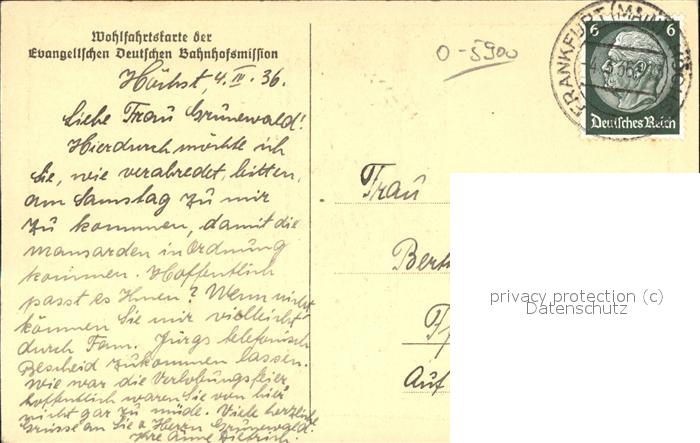 Wohlfahrtskarte der
Evangelischen Deutschen Bahnhofsmission
Höchst, 4. IV. 36.
Liebe Frau Grünewald!
Hierdurch möchte ich
Sie, wie verabredet, bitten,
am Samstag zu mir
zu kommen, damit die
Mansarden in Ordnung
kommen. Hoffentlich
passt es Ihnen? Wenn nicht,
können Sie mir vielleicht
durch Fam. Jürgs telefonisch
Bescheid zukommen lassen.
Wie war die Verlobungsfeier,
hoffentlich waren Sie von hier
nicht gar zu müde. Viele herzliche
Grüsse an Sie u. Herrn Grünewald!
Ihre Anne Dietrich.
0-5900
FRANKFURT (MAIN)
6 6
Deutsches Reich
Frau
Berth
Auf
privacy protection (c)
Datenschutz